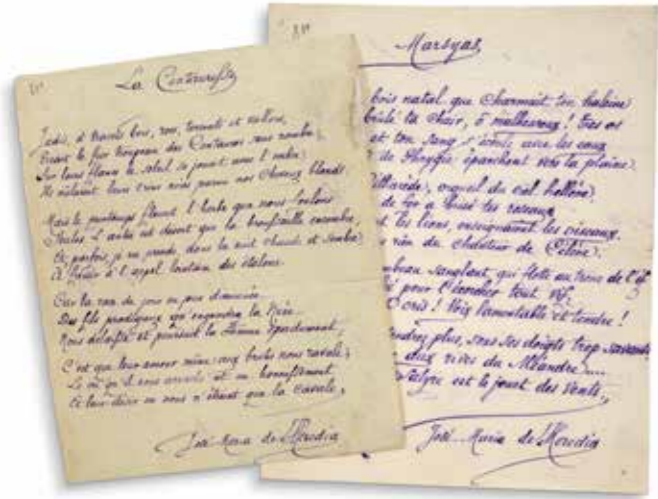 La Centauresse
Jadis, à travers bois, rocs, torrents et vallons,
Errait le fier troupeau des Centaures sans nombre;
Sur leurs flancs le soleil se jouait avec l'ombre;
Ils mêlaient leurs crins noirs parmi nos cheveux blonds.
Mais le printemps fleurit l'herbe que nous foulons
Seules. L'antre est désert que la broussaille encombre,
Et parfois, je me prends dans la nuit chaude et sombre
À frémir à l'appel lointain des étalons.
Car la race de jour en jour diminuée
Des fils prodigieux qu'engendra la Nuée
Nous délaisse et poursuit la Femme éperdument,
C'est que leur amour même aux brutes nous ravale;
Le cri qu'il nous arrache est un hennissement
Et leur désir en nous n'étreint que la cavale,
José-Maria de Heredia
Marsyas
bois natal que charmait ton haleine
brûlé ta chair, ô malheureux! tes os
et ton sang s'écoule avec les eaux
de Phrygie épanchent vers la plaine;
orgueil du ciel hellène,
de fer a brisé tes roseaux
les lions, enseignaient les oiseaux.
rien du chanteur de Célène;
lambeau sanglant, qui flotte au tronc de l'if
pour l'écorcher tout vif.
cris! Voix lamentable et tendre!
plus, sous ses doigts trop savants
aux rives du Méandre ....
est le jouet des vents,
José-Maria de Heredia